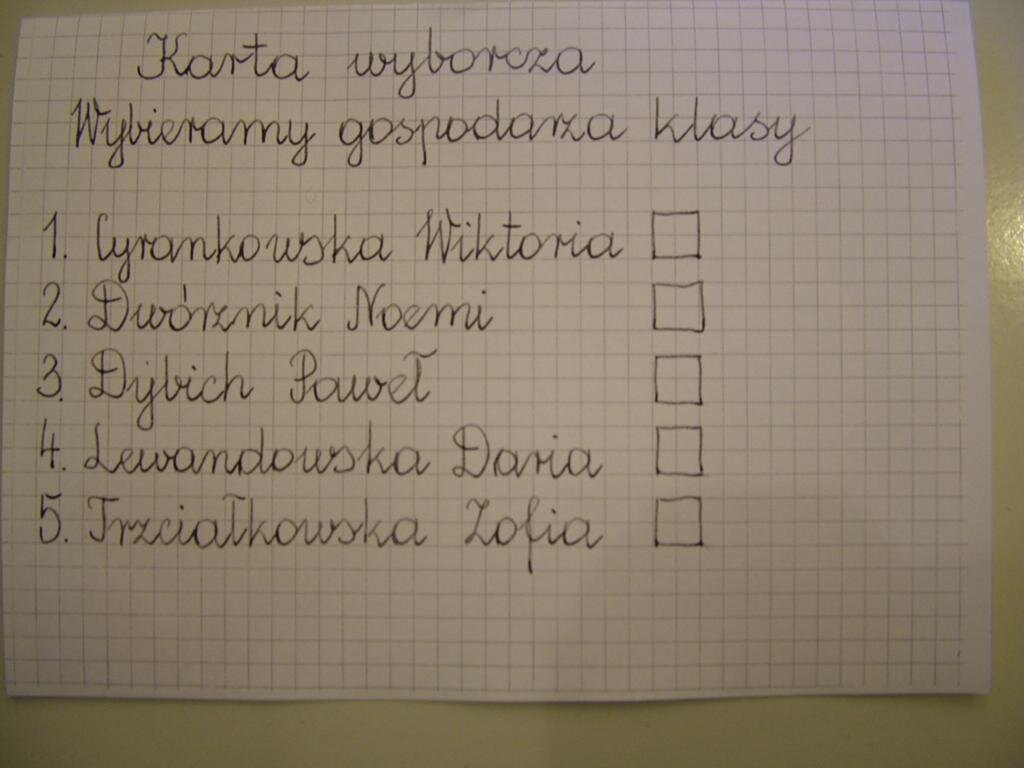 Karta wyborcza
Wybieramy gospodarza klasy
1. Cyrankowska Wiktoria
2. Dwórznik Noemi
3. Dybich Paweł
4. Lewandowska Daria
5. Trzciałkowska Zofia